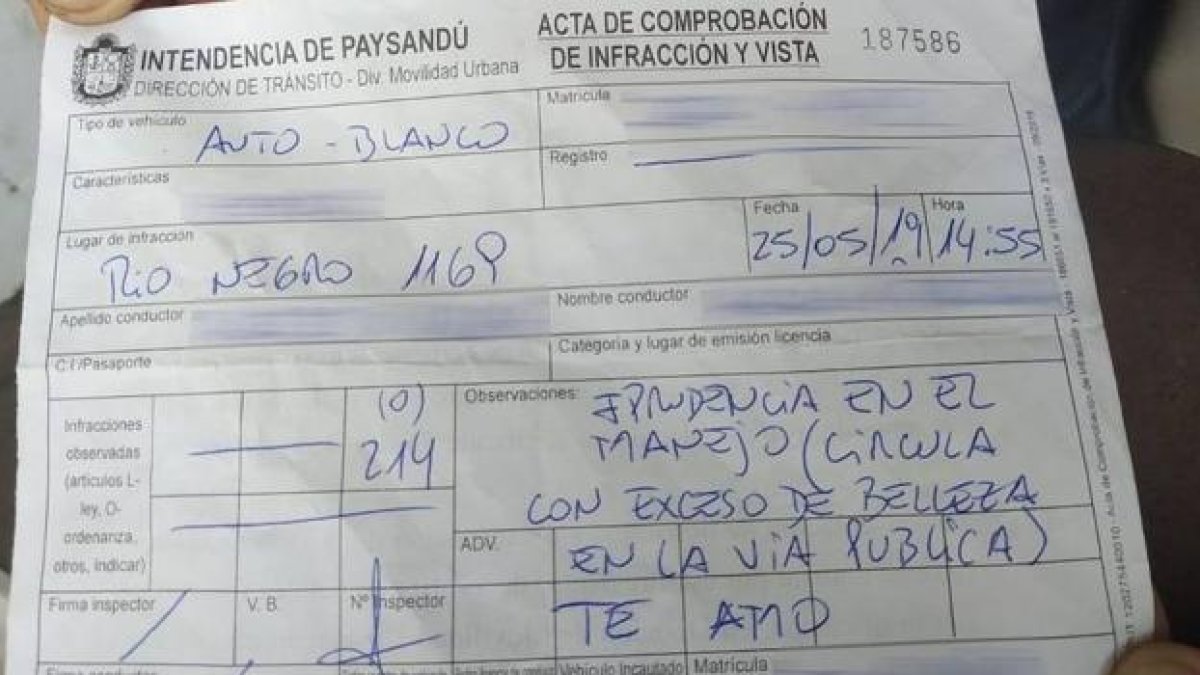 INTENDENCIA DE PAYSANDÚ
DIRECCIÓN DE TRÁNSITO - Div. Movilidad Urbana
ACTA DE COMPROBACIÓN
DE INFRACCIÓN Y VISTA
187586
Tipo de vehículo
AUTO - BLANCO
Matrícula
Características
Registro
Lugar de infracción
RIO NEGRO 1169
Fecha
25/05/19
Hora
14:55
Apellido conductor
Nombre conductor
C.I./Pasaporte
Categoria y lugar de emisión licencia
Infracciones
observadas
(artículos L-
ley, O-
ordenanza,
otros, indicar)
(O)
214
Observaciones:
IPRUDENCIA EN EL
MANEJO (CIRCULA
CON EXCESO DE BELLEZA
EN LA VIA PUBLICA)
TE AMO
ADV.
Firma inspector
V. B.
Nº Inspector
Vehículo Incautado
Matrícula